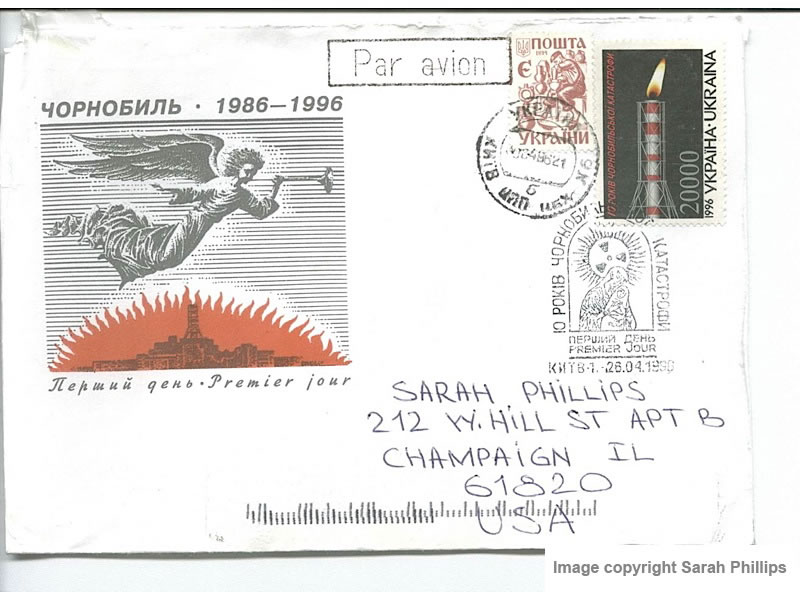 Par avion
ПОШТА
Є
УКРАЇНИ
10 РОКІВ ЧОРНОБИЛЬСЬКОЇ КАТАСТРОФИ
20000
1996 УКРАЇНА · UKRAINA
ЧОРНОБИЛЬ · 1986–1996
УКРАЇНА
КИЇВ
10 РОКІВ ЧОРНОБИЛЬСЬКОЇ КАТАСТРОФИ
ПЕРШИЙ ДЕНЬ
PREMIER JOUR
КИЇВ-1.-26.04.1996
Перший день · Premier jour
SARAH PHILLIPS
212 W. HILL ST APT B
CHAMPAIGN IL
61820
USA
Image copyright Sarah Phillips